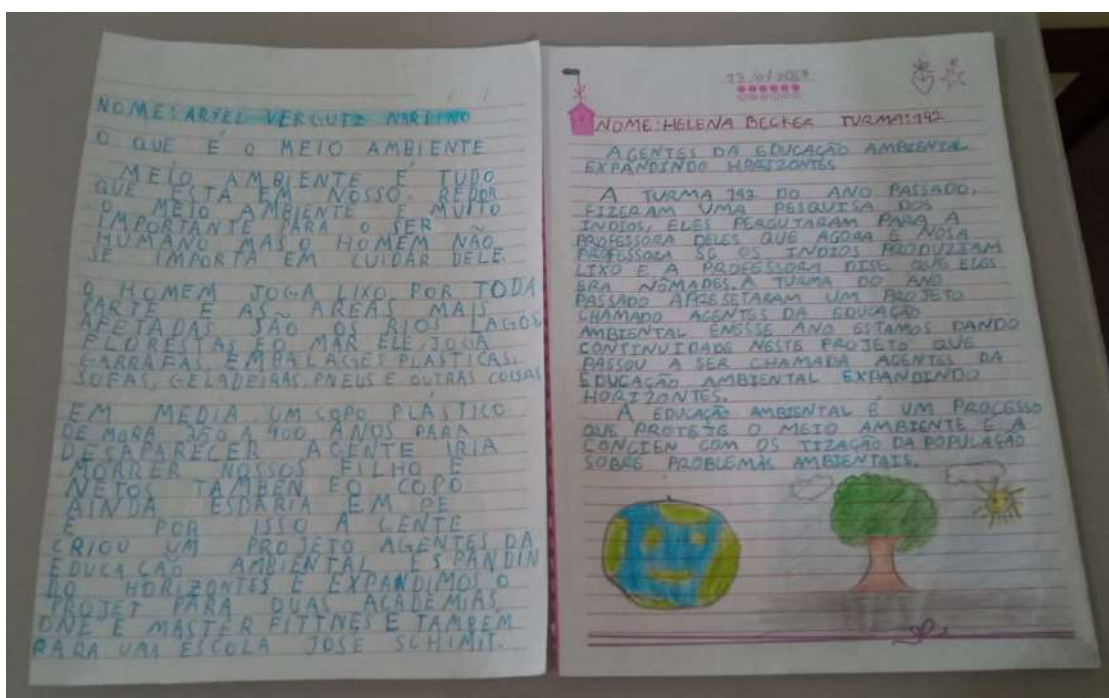 NOME: ARYEL VERGUTZ NARDINO
O QUE É O MEIO AMBIENTE
MEIO AMBIENTE É TUDO
QUE ESTA EM NOSSO REDOR
O MEIO AMBIENTE E MUITO
IMPORTANTE PARA O SER
HUMANO MAS O HOMEM NÃO
SE IMPORTA EM CUIDAR DELE.
O HOMEM JOGA LIXO POR TODA
PARTE E AS AREAS MAIS
AFETADAS SÃO OS RIOS LAGOS
FLORESTAS EO MAR ELE JOGA
GARRAFAS, EMBALAGES PLASTICAS,
SOFAS, GELADEIRAS, PNEUS E OUTRAS COISAS
EM MEDIA UM COPO PLÁSTICO
DE MORA 350 A 400 ANOS PARA
DESAPARECER AGENTE IRIA
MORRER NOSSOS FILHO E
NETOS TAMBEN EO COPO
AINDA ESDARIA EM PE
E POR ISSO A GENTE
CRIOU UM PROJETO AGENTES DA
EDUCAÇÃO AMBIENTAL ESPANDIN
DO HORIZONTES E EXPANDIMOS O
PROJET PARA DUAS ACADEMIAS,
ONE E MASTER FITTNES E TAMBEM
PARA UMA ESCOLA JOSE SCHIMIT.
NOME: HELENA BECKER TURMA: 142
AGENTES DA EDUCAÇÃO AMBIENTAL
EXPANDINDO HORIZONTES
A TURMA 142 DO ANO PASSADO,
FIZERAM UMA PESQUISA DOS
INDIOS, ELES PERGUTARAM PARA A
PROFESSORA DELES QUE AGORA É NOSA
PROFESSORA SE OS INDIOS PRODUZIAM
LIXO E A PROFESSORA DISE QUE ELES
ERA NÔMADES. A TURMA DO ANO
PASSADO APRESETARAM UM PROJETO
CHAMADO AGENTES DA EDUCAÇÃO
AMBIENTAL ENESSE ANO ESTAMOS DANDO
CONTINUIDADE NESTE PROJETO QUE
PASSOU A SER CHAMADA AGENTES DA
EDUCAÇÃO AMBIENTAL EXPANDINDO
HORIZONTES.
A EDUCAÇÃO AMBIENTAL É UM PROCESSO
QUE PROTEJE O MEIO AMBIENTE E A
CONCIEN COM OS TIZAÇÃO DA POPULAÇÃO
SOBRE PROBLEMAS AMBIENTAIS.